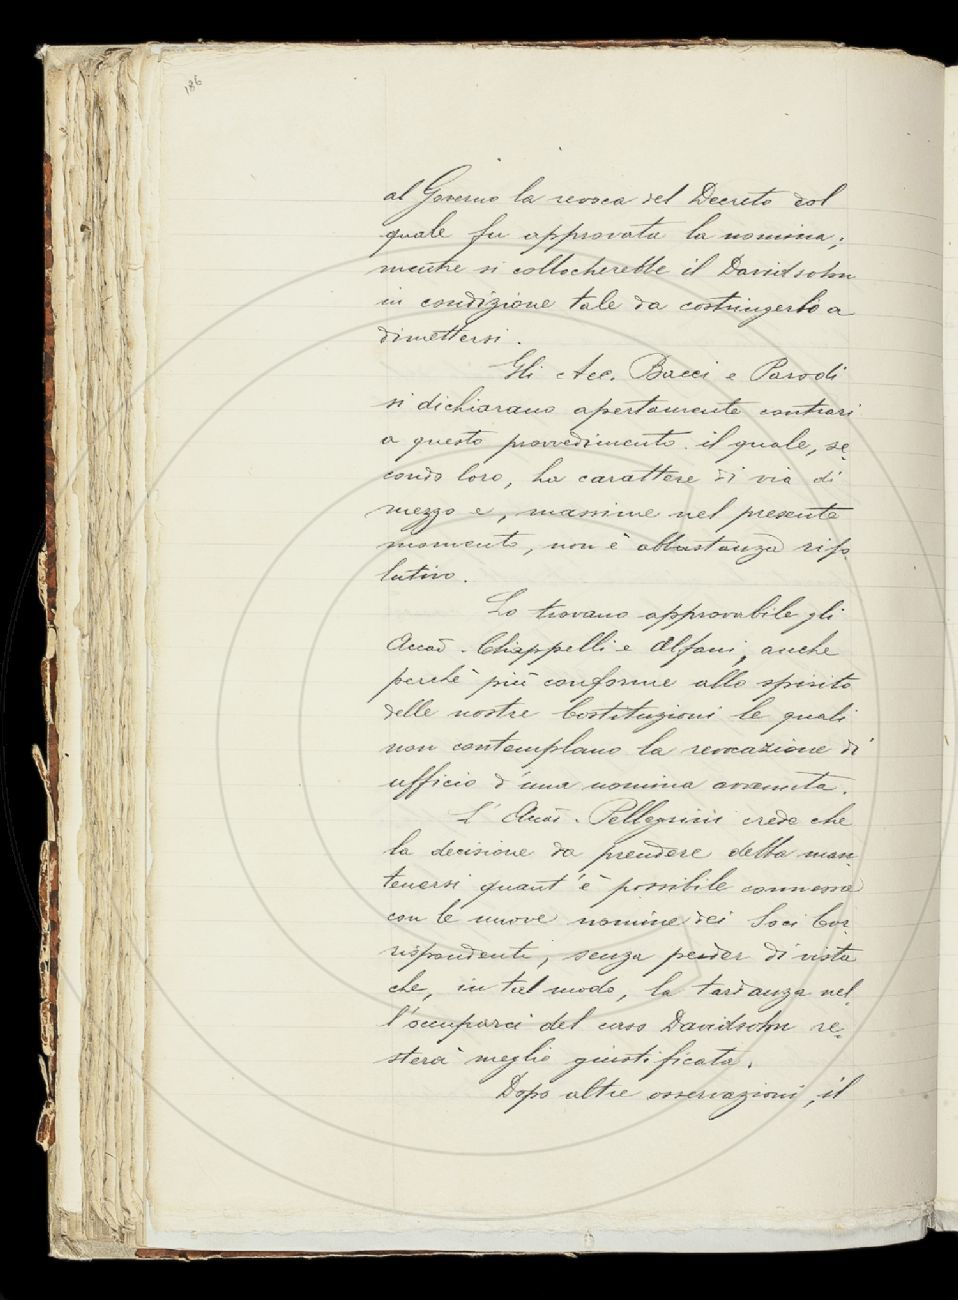 186
al Governo la revoca del Decreto col
quale fu approvata la nomina;
mentre si collocherebbe il Davidsohn
in condizione tale da costringerlo a
dimettersi.
Gli Acc. Bacci e Parodi
si dichiarano apertamente contrari
a questo provvedimento il quale, se-
condo loro, ha carattere di via di
mezzo e, massime nel presente
momento, non è abbastanza riso-
lutivo.
Lo trovano approvabile gli
Accad. Chiappelli e Alfani, anche
perchè più conforme allo spirito
delle nostre Costituzioni le quali
non contemplano la revocazione di
ufficio d'una nomina avvenuta.
L'Accad. Pellegrini crede che
la decisione da prendere debba man
tenersi quant'è possibile connessa
con le nuove nomine dei Soci Cor-
rispondenti, senza perder di vista
che, in tal modo, la tardanza nel-
l'occuparci del caso Davidsohn re-
sterà meglio giustificata.
Dopo altre osservazioni, il